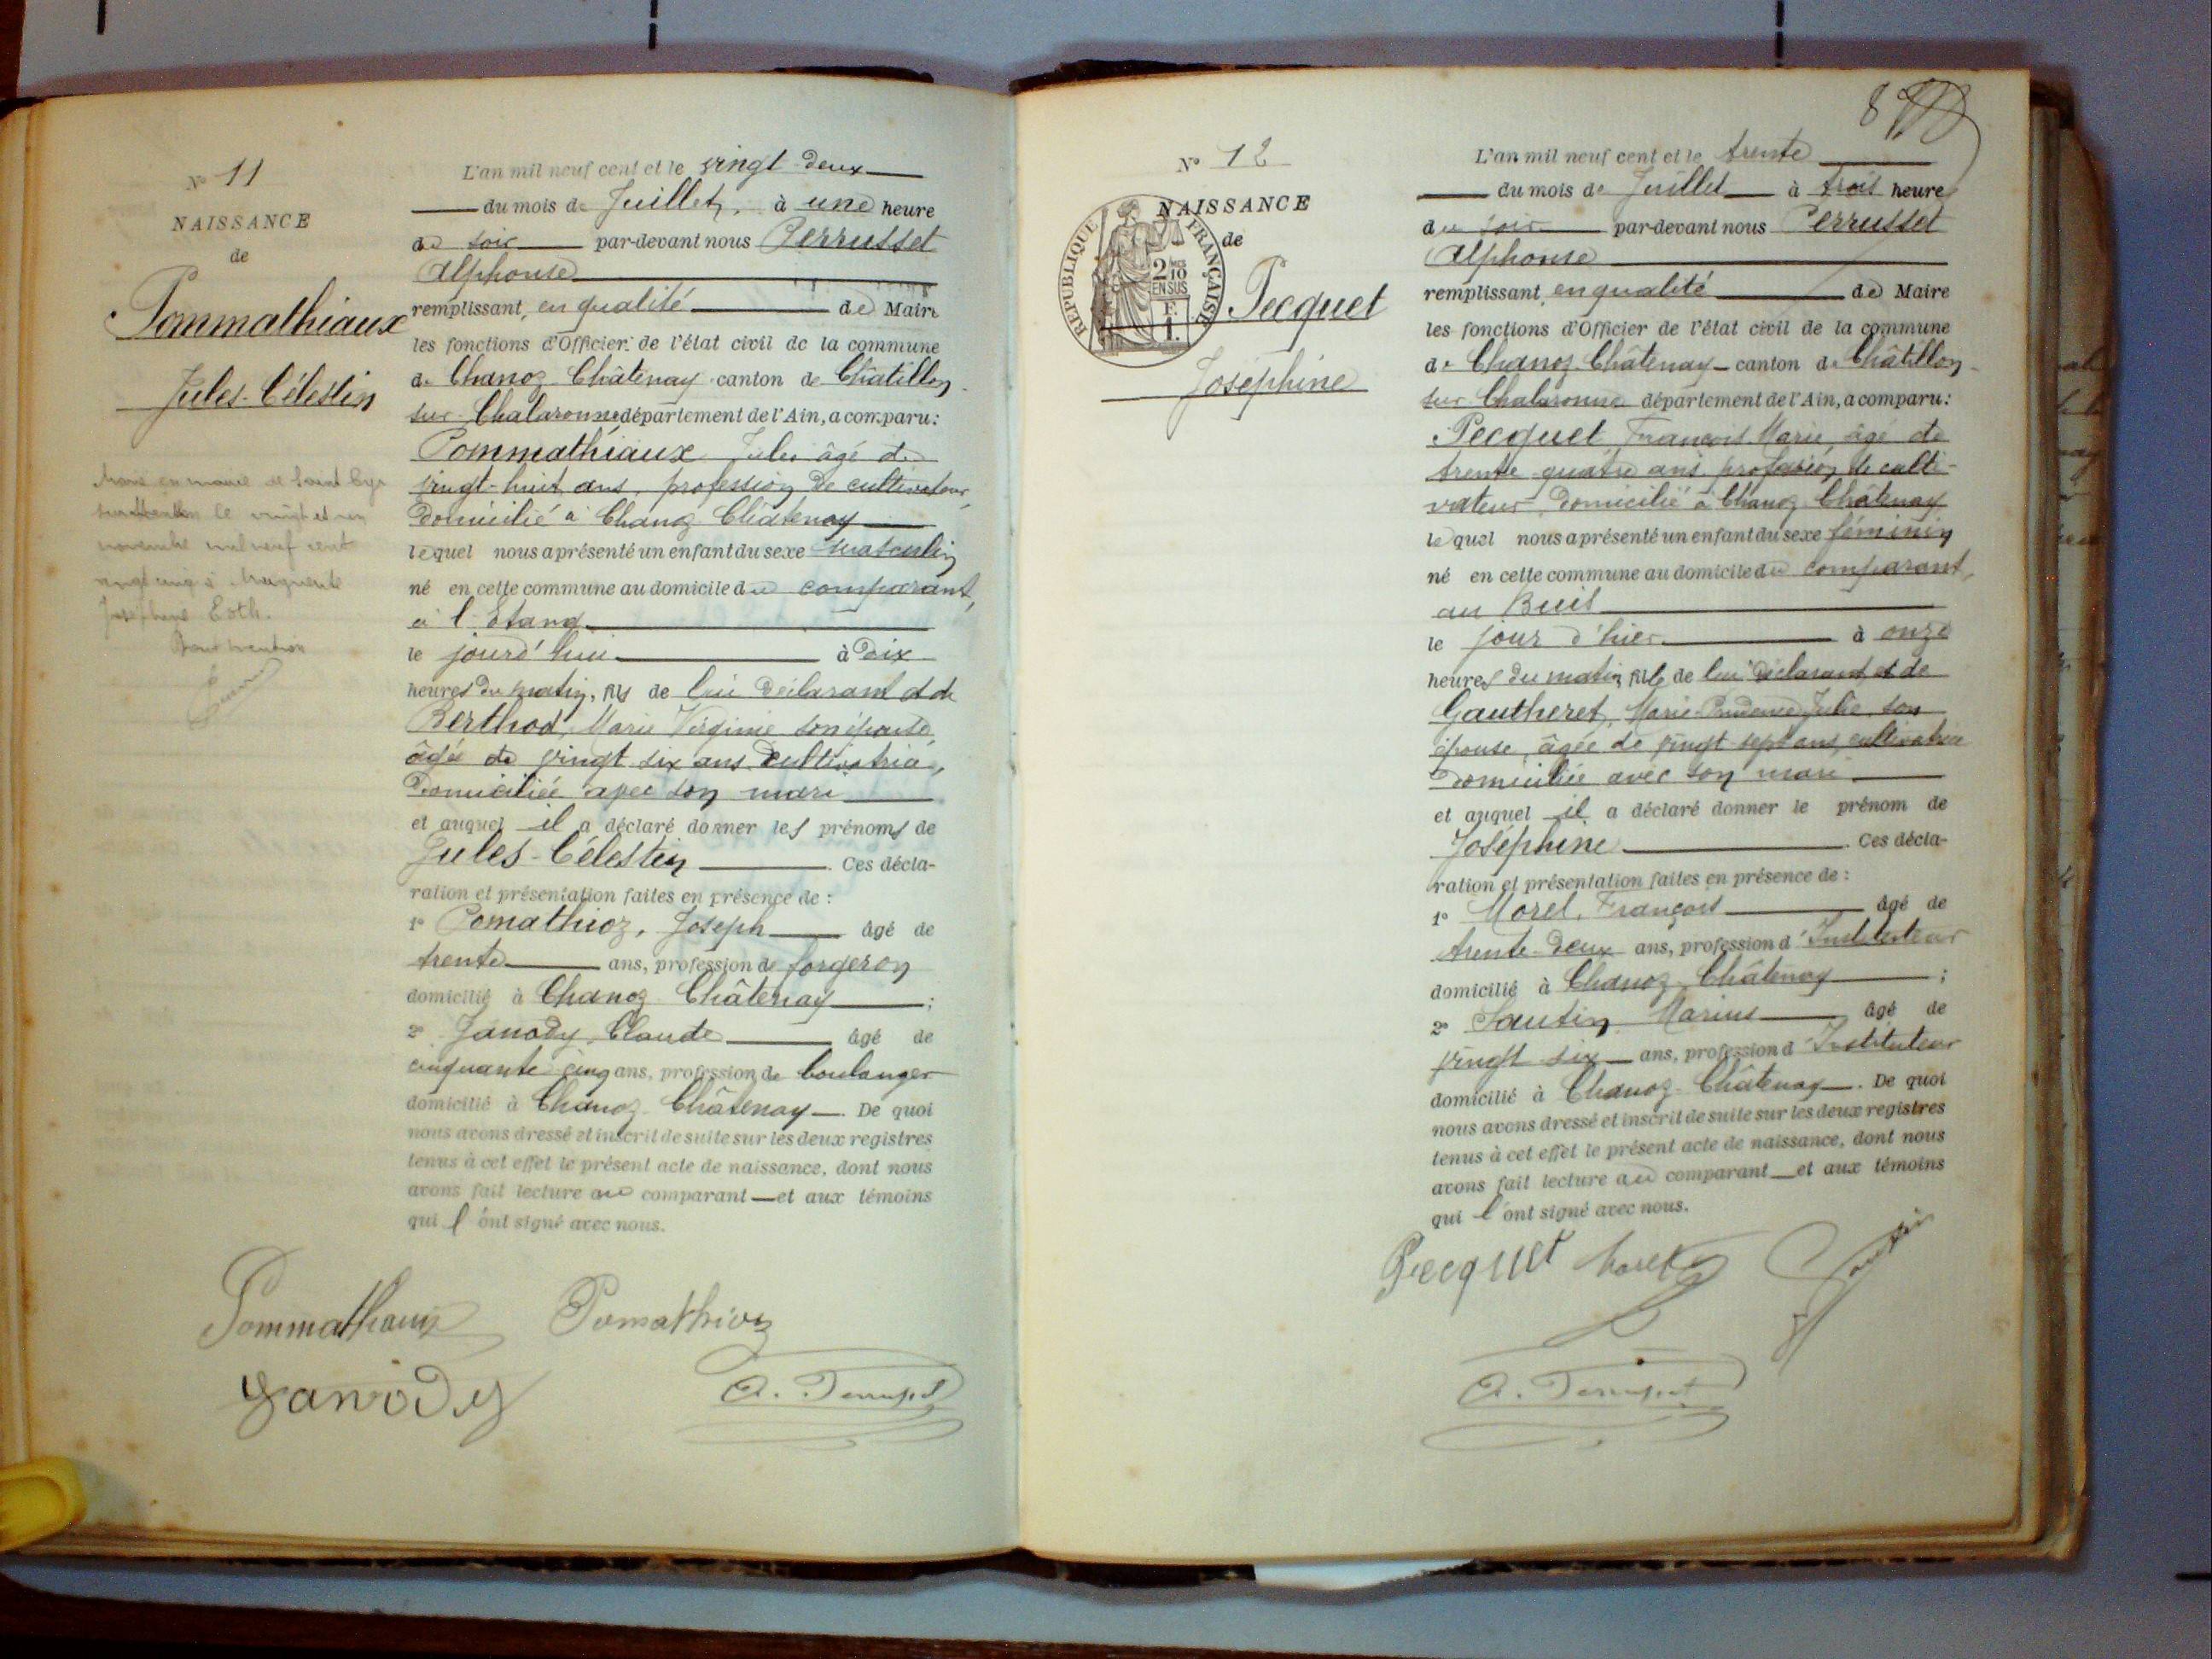 N° 11
NAISSANCE
de
Pommathiaux
Jules-Célestin
novembre mil neuf cent
L'an mil neuf cent et le vingt deux
du mois de Juillet, à une heure
du soir par-devant nous Perrusset
Alphonse
remplissant, en qualité de Maire
les fonctions d'Officier de l'état civil de la commune
de Chanoz-Châtenay canton de Châtillon
sur-Chalaronne département de l'Ain, a comparu:
Pommathiaux Jules âgé de
vingt-huit ans, profession de cultivateur,
domicilié à Chanoz-Châtenay
lequel nous a présenté un enfant du sexe masculin
né en cette commune au domicile du comparant,
à l'Etang
le jourd'hui à dix
heures du matin, fils de lui déclarant et de
Berthod, Marie Virginie son épouse,
âgée de vingt six ans cultivatrice,
domiciliée avec son mari
et auquel il a déclaré donner les prénoms de
Jules-Célestin. Ces décla-
ration et présentation faites en présence de :
1° Pomathioz, Joseph âgé de
trente ans, profession de forgeron
domicilié à Chanoz-Châtenay ;
2° Janody, Claude âgé de
cinquante cinq ans, profession de boulanger
domicilié à Chanoz-Châtenay. De quoi
nous avons dressé et inscrit de suite sur les deux registres
tenus à cet effet le présent acte de naissance, dont nous
avons fait lecture au comparant et aux témoins
qui l'ont signé avec nous.
Pommathiaux Pomathioz
Janody A. Perrusset
8
N° 12
NAISSANCE
de
RÉPUBLIQUE FRANÇAISE
2/10 EN SUS
F. 1.
Pecquet
Joséphine
L'an mil neuf cent et le trente
du mois de Juillet à trois heures
du soir par-devant nous Perrusset
Alphonse
remplissant, en qualité de Maire
les fonctions d'Officier de l'état civil de la commune
de Chanoz-Châtenay canton de Châtillon
sur-Chalaronne département de l'Ain, a comparu:
Pecquet François Marie, âgé de
trente-quatre ans profession de culti-
vateur, domicilié à Chanoz-Châtenay
lequel nous a présenté un enfant du sexe féminin
né en cette commune au domicile du comparant,
au Buis
le jour d'hier à onze
heures du matin, fille de lui déclarant et de
Gautheret, Marie-Prudence Julie, son
épouse, âgée de vingt-sept ans, cultivatrice
domiciliée avec son mari
et auquel il a déclaré donner le prénom de
Joséphine. Ces décla-
ration et présentation faites en présence de :
1° Morel, François âgé de
trente-deux ans, profession d'Instituteur
domicilié à Chanoz-Châtenay ;
2° Sautin Marius âgé de
vingt six ans, profession d'Instituteur
domicilié à Chanoz-Châtenay. De quoi
nous avons dressé et inscrit de suite sur les deux registres
tenus à cet effet le présent acte de naissance, dont nous
avons fait lecture au comparant et aux témoins
qui l'ont signé avec nous.
Pecquet Morel
A. Perrusset